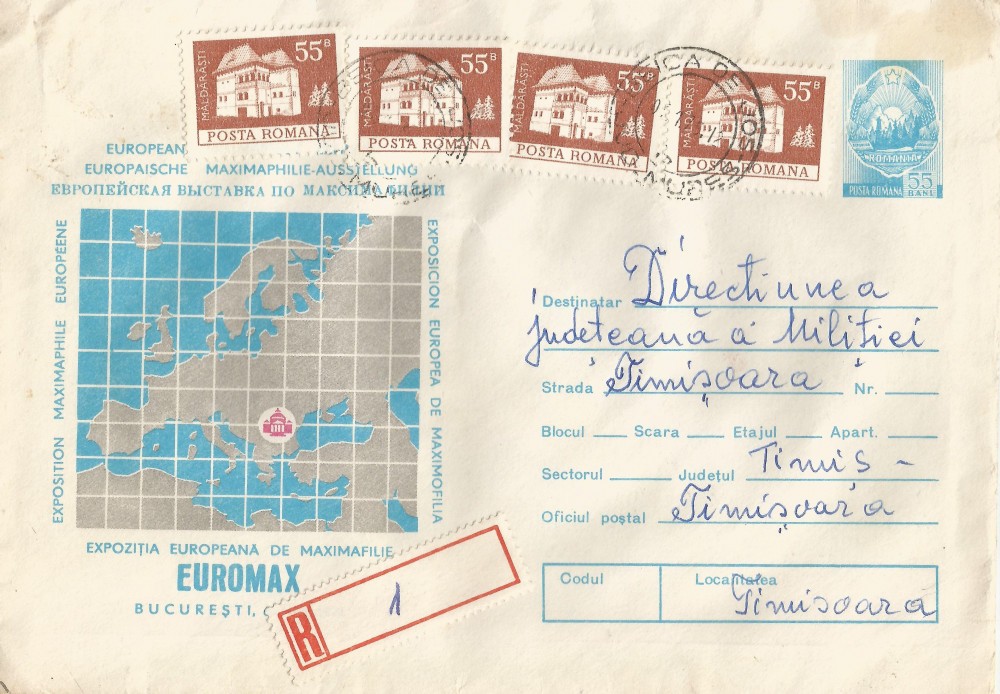 MĂLDĂRĂȘTI
55 B
POSTA ROMANA
MĂLDĂRĂȘTI
55 B
POSTA ROMANA
MĂLDĂRĂȘTI
55 B
POSTA ROMANA
MĂLDĂRĂȘTI
55 B
POSTA ROMANA
ROMANIA
POSTA ROMANA
55
BANI
EUROPEAN
EUROPAISCHE MAXIMAPHILIE-AUSSTELLUNG
ЕВРОПЕЙСКАЯ ВЫСТАВКА ПО
EXPOSITION MAXIMAPHILE EUROPÉENE
EXPOSICION EUROPEA DE MAXIMOFILIA
EXPOZIȚIA EUROPEANĂ DE MAXIMAFILIE
EUROMAX
BUCUREȘTI,
R
1
Destinatar Directiunea
judeteană a Militiei
Strada Timișoara Nr.
Blocul Scara Etajul Apart.
Sectorul Județul Timiș -
Oficiul poștal Timișoara
Codul Localitatea
Timisoara